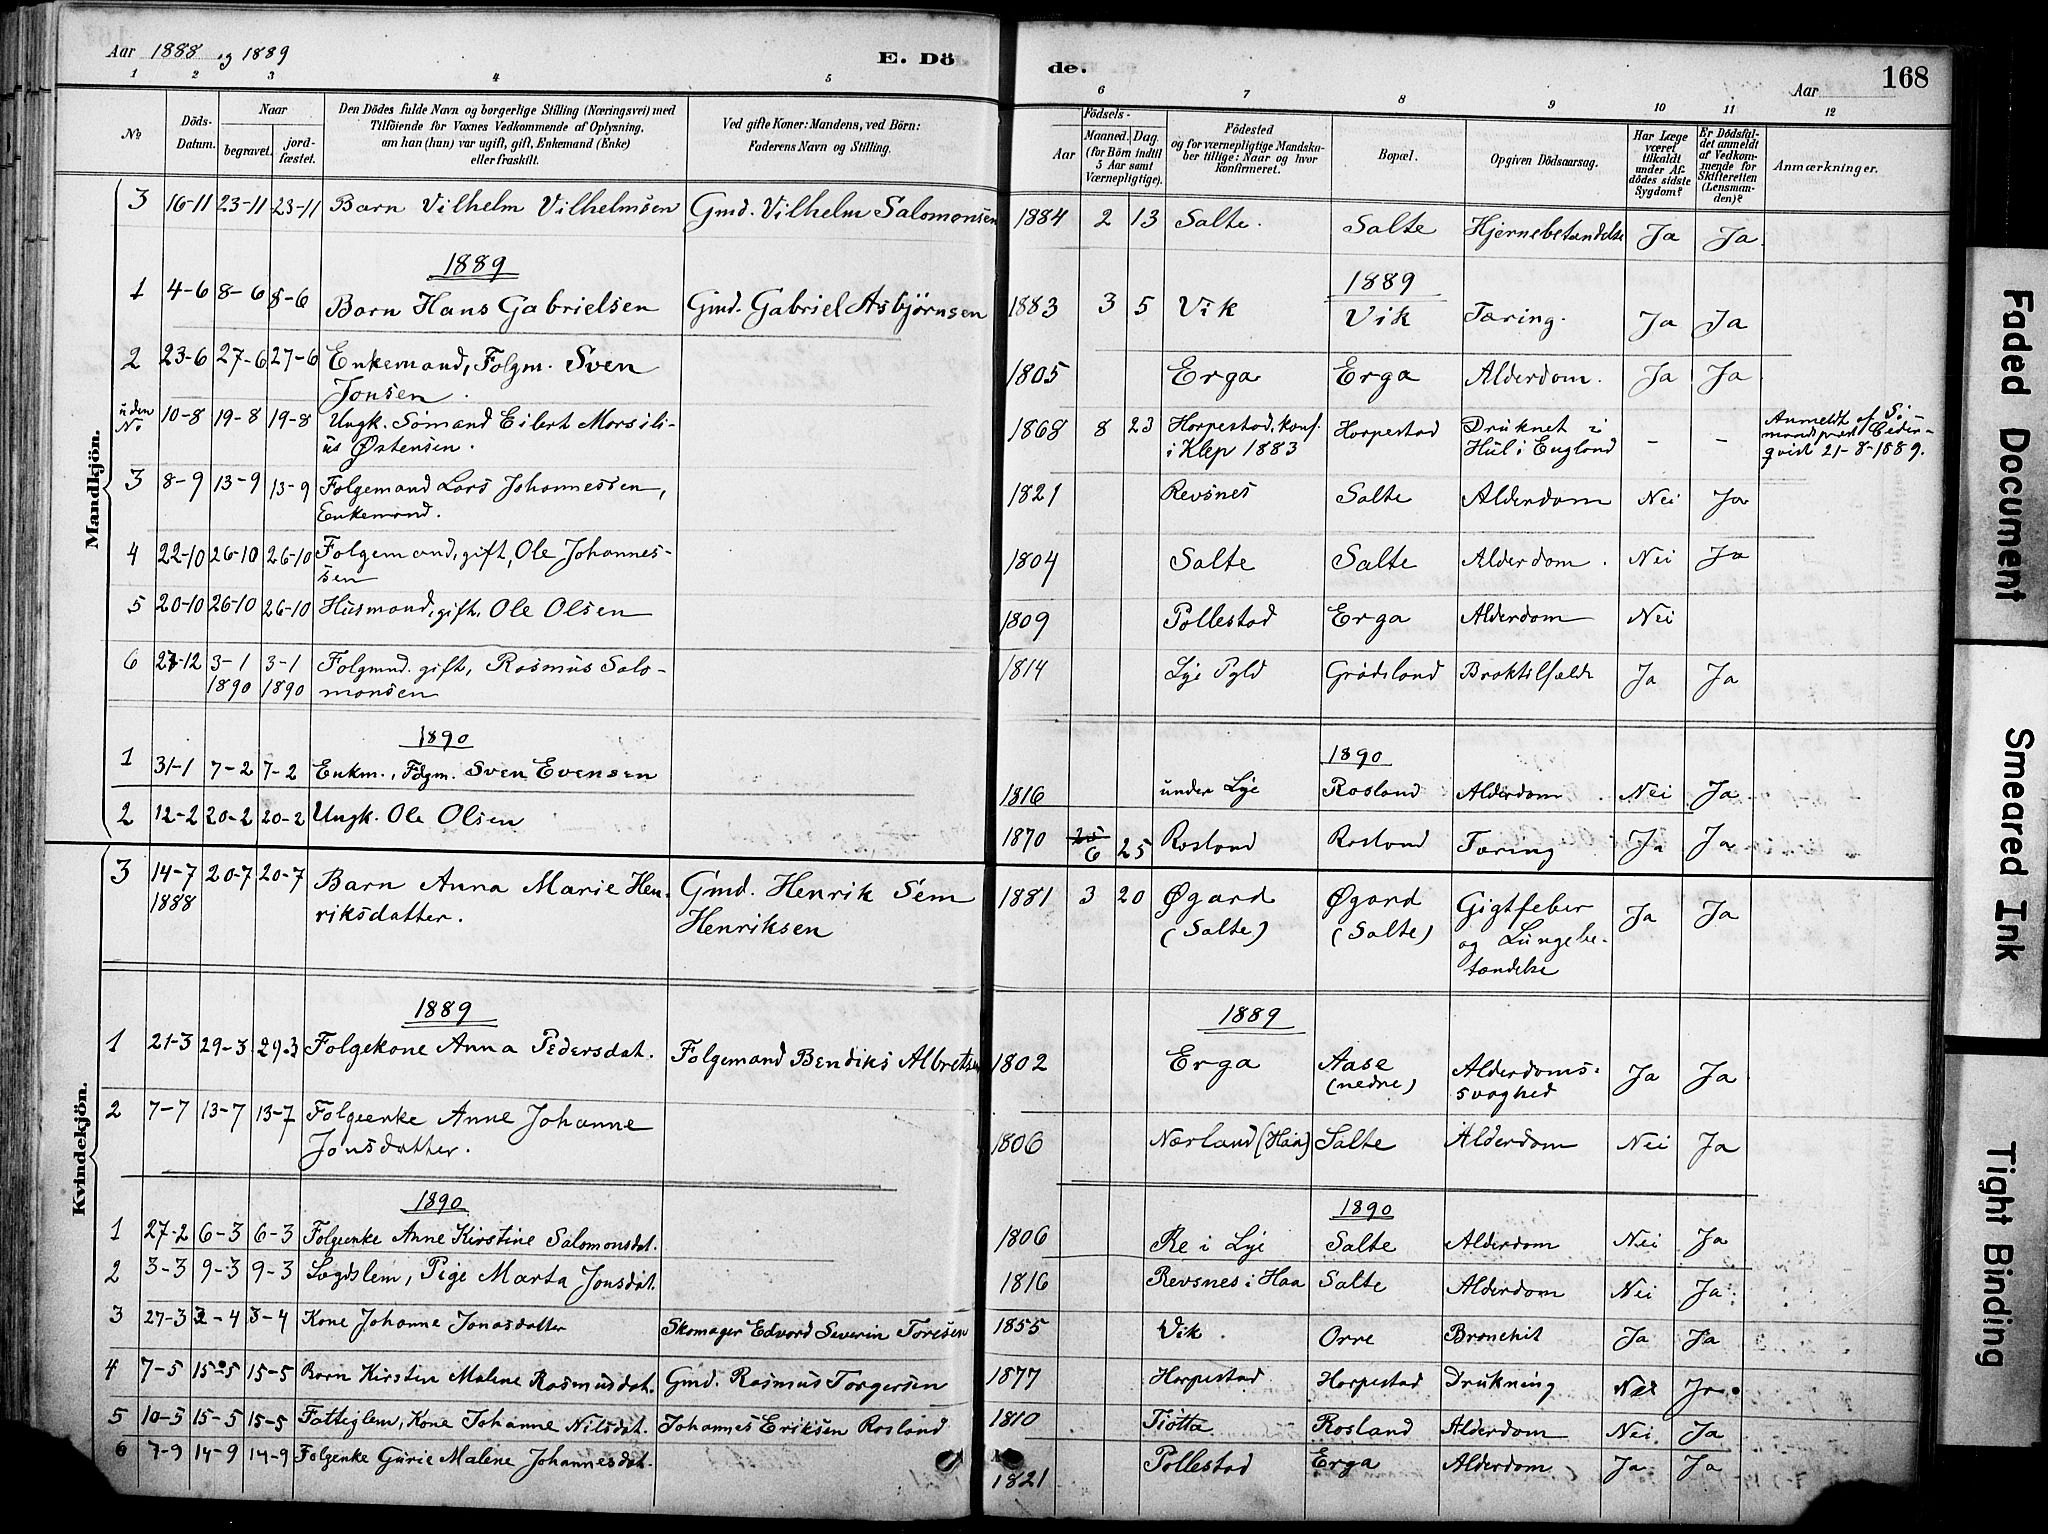 Aar 1888 og 1889
E. Dö
de.
Aar
168
1 2 3 4 5 6 7 8 9 10 11 12
No
Döds-Datum.
Naar
begravet.
jord-fæstet.
Den Dödes fulde Navn og borgerlige Stilling (Næringsvei) med
Tilföiende for Voxnes Vedkommende af Oplysning,
om han (hun) var ugift, gift, Enkemand (Enke)
eller fraskilt.
Ved gifte Koner: Mandens, ved Börn:
Faderens Navn og Stilling.
Födsels-
Aar
Maaned. Dag.
(for Börn indtil
5 Aar samt
Værnepligtige).
Födested
og for værnepligtige Mandska-
ber tillige: Naar og hvor
konfirmeret.
Bopæl.
Opgiven Dödsaarsag.
Har Læge
været
tilkaldt
under Af-
dödes sidste
Sygdom?
Er Dödsfal-
det anmeldt
af Vedkom-
mende for
Skifteretten
(Lensman-
den)?
Anmærkninger.
Mandkjön.
3 16-11 23-11 23-11 Barn Vilhelm Vilhelmsen Gmd. Vilhelm Salomonsen 1884 2 13 Salte. Salte Hjernebetændelse Ja Ja.
1889 1889
1 4-6 8-6 8-6 Barn Hans Gabrielsen Gmd. Gabriel Asbjørnsen 1883 3 5 Vik Vik Tæring. Ja Ja
2 23-6 27-6 27-6 Enkemand, Folgm. Sven 1805 Erga Erga Alderdom. Ja Ja
Jonsen.
uden No 10-8 19-8 19-8 Ungk. Sømand Eilert Morsili- 1868 8 23 Horpestad, konf. Horpestad Druknet i - - Anmeldt af Sø-
us Østensen. i Klep 1883 Hul i England mandspræst Ceder-
qvist 21-8-1889.
3 8-9 13-9 13-9 Folgemand Lars Johannessen, 1821 Revsnes Salte Alderdom Nei Ja
Enkemand.
4 22-10 26-10 26-10 Folgemand, gift, Ole Johannes- 1804 Salte Salte Alderdom. Nei Ja
sen
5 20-10 26-10 26-10 Husmand, gift, Ole Olsen 1809 Pollestad Erga Alderdom Nei
6 27-12 3-1 3-1 Folgmd. gift, Rasmus Salo- 1814 Lye Pgld Grødsland Braktilfælde Ja Ja
1890 1890 monsen
1890 1890
1 31-1 7-2 7-2 Enkm., Fdgm. Sven Evensen 1816 under Lye Rosland Alderdom Nei Ja
2 12-2 20-2 20-2 Ungk. Ole Olsen 1870 6 25 Rosland Rosland Tæring Ja Ja
Kvindekjön.
3 14-7 20-7 20-7 Barn Anna Marie Hen- Gmd. Henrik Sem 1881 3 20 Øgard Øgard Gigtfeber Ja Ja
1888 riksdatter. Henriksen (Salte) (Salte) og Lungebe-
tændelse
1889 1889
1 21-3 29-3 29-3 Folgekone Anna Pedersdat. Folgemand Bendiks Albretsen 1802 Erga Aase Alderdoms- Ja Ja
(nedre) svaghed
2 7-7 13-7 13-7 Folgeenke Anne Johanne 1806 Nærland (Haa) Salte Alderdom Nei Ja
Jonsdatter.
1890 1890
1 27-2 6-3 6-3 Folgeenke Anne Kirstine Salomonsdat. 1806 Re i Lye Salte Alderdom Nei Ja
2 3-3 9-3 9-3 Lægdslem, Pige Marta Jonsdat. 1816 Revsnes i Haa Salte Alderdom Nei Ja
3 27-3 3-4 3-4 Kone Johanne Jonasdatter Skomager Edvard Severin Toresen 1855 Vik. Orre Bronchit Ja Ja
4 7-5 15-5 15-5 Barn Kirsten Malene Rasmusdat. Gmd. Rasmus Torgersen 1877 Horpestad Horpestad Drukning Nei Ja
5 10-5 15-5 15-5 Fattiglem, Kone Johanne Nilsdat. Johannes Eriksen Rosland 1810 Tiøtta Rosland Alderdom Nei. Ja
6 7-9 14-9 14-9 Folgenke Gurie Malene Johannesdat. 1821 Pollestad Erga Alderdom Ja Ja
Faded Document
Smeared Ink
Tight Binding